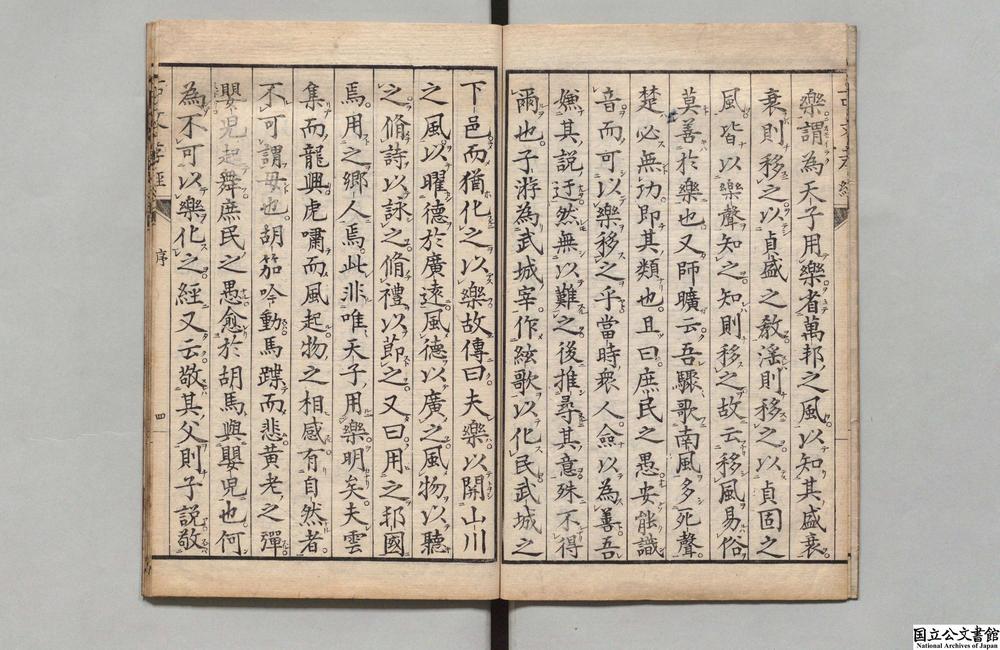 樂謂為天子用樂省萬邦之風以知其盛衰
衰則移之以貞盛之敎滛則移之以貞固之
風皆以樂聲知之知則移之故云移風易俗
莫善於樂也又師曠云吾驟歌南風多死聲
楚必無功即其類也且曰庶民之愚安能識
音而可以樂移之乎當時衆人僉以為善吾
嫌其說迂然無以難之後推尋其意殊不得
爾也子游為武城宰作絃歌以化民武城之
下邑而猶化之以樂故傳曰夫樂以關山川
之風以曜德於廣遠風德以廣之風物以聽
之脩詩以詠之脩禮以節之又曰用之邦國
焉用之鄉人焉此非唯天子用樂明矣夫雲
集而龍興虎嘯而風起物之相感有自然者
不可謂毋也胡笳吟動馬蹀而悲黃老之彈
嬰兒起舞庶民之愚愈於胡馬與嬰兒也何
為不可以樂化之經又云敬其父則子說敬
序
四
国立公文書館
National Archives of Japan